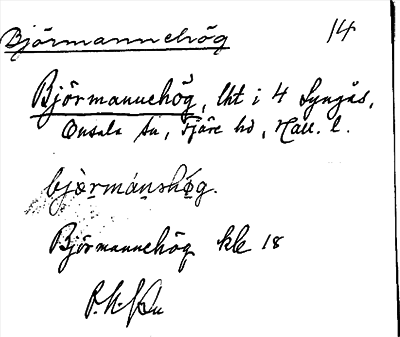 Björmannehög 14
Björmannehög, lht i 4 Lyngås,
Onsala sn, Fjäre hd, Hall. l.
bjö̱rmánshö́g.
Björmannehög kb 18